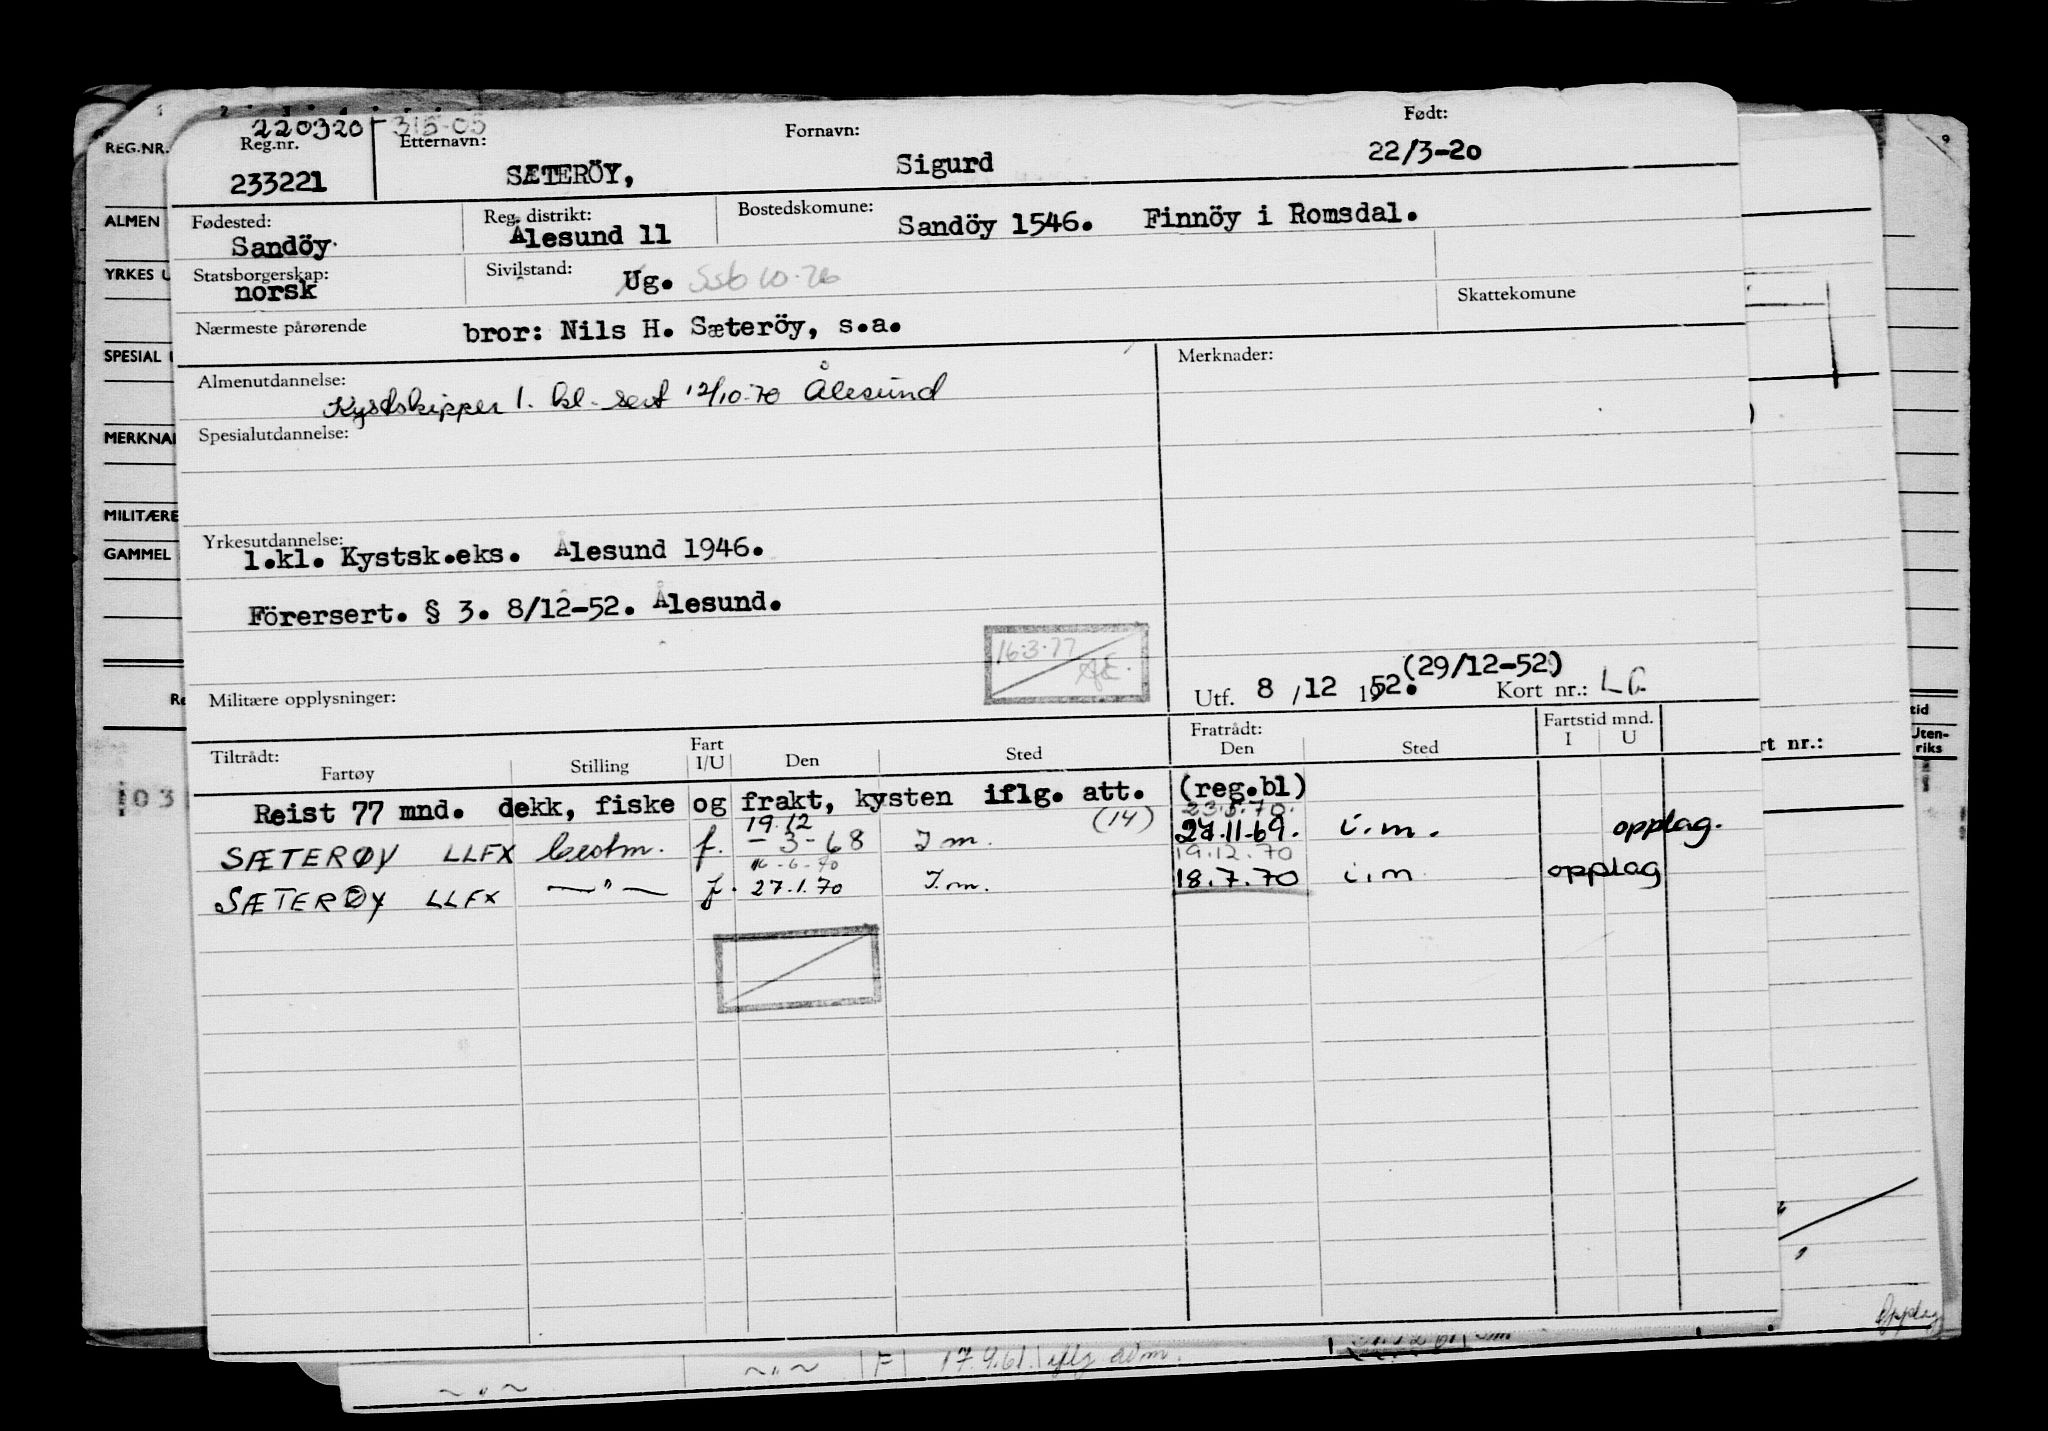 220320 315-05
REG.NR. Reg.nr. Etternavn: Fornavn: Født:
233221 SÆTERÖY, Sigurd 22/3-20
ALMEN Fødested: Reg. distrikt: Bostedskomune:
Sandöy Ålesund 11 Sandöy 1546. Finnöy i Romsdal.
YRKES U Statsborgerskap: Sivilstand:
norsk Ug. Ssb 10.76
Skattekomune
Nærmeste pårørende bror: Nils H. Sæteröy, s.a.
SPESIAL
Almenutdannelse: Merknader:
Kystskipper 1. kl. sert 12/10-70 Ålesund
MERKNA Spesialutdannelse:
MILITÆRE
GAMMEL Yrkesutdannelse:
1.kl. Kystsk.eks. Ålesund 1946.
Förersert. § 3. 8/12-52. Ålesund.
16.3.77
(29/12-52)
Militære opplysninger: Utf. 8 /12 1952. Kort nr.:
Tiltrådt: Fratrådt: Fartstid mnd.
Fartøy Stilling Fart I/U Den Sted Den Sted I U
rt nr.: Uten-
riks
Reist 77 mnd. dekk, fiske og frakt, kysten iflg. att. (reg.bl)
19.12 (14) 23.5.70.
SÆTERØY LLFX bestm. f. -3-68 I m. 27.11.69. i.m. opplag.
16-6-70 19.12.70
SÆTERØY LLFX —"— f. 27.1.70 I.m. 18.7.70 i.m opplag
Opplag
~"~ ~"~ F 17.9.61. iflg